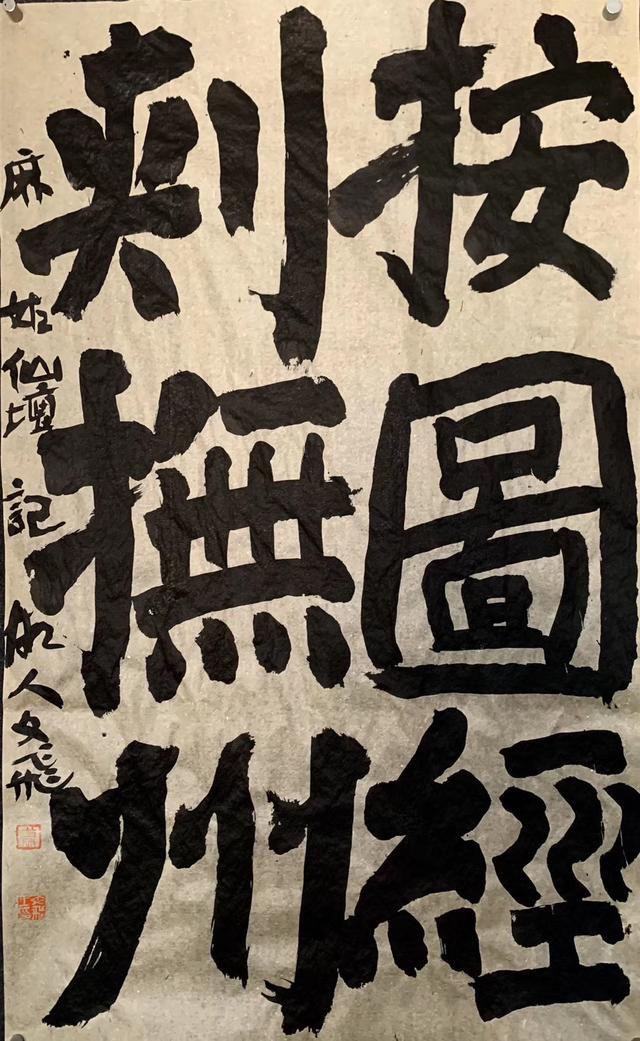 按圖經
刺撫州
麻姑仙壇記 人文飛